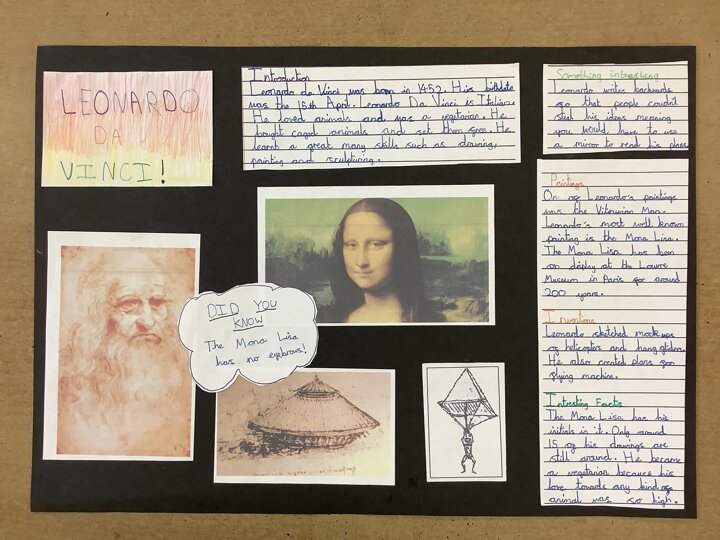 LEONARDO
DA
VINCI!
Introduction
Leonardo da Vinci was born in 1452. His birthdate
was the 15th April. Leonardo Da Vinci is Italian.
He loved animals and was a vegetarian. He
bought caged animals and set them free. He
learnt a great many skills such as drawing,
painting and sculpturing.
Something interesting
Leonardo writes backwards
so that people couldn't
steal his ideas meaning
you would have to use
a mirror to read his plans
Paintings
One of Leonardo's paintings
was the Vitruvian Man.
Leonardo's most well known
painting is the Mona Lisa.
The Mona Lisa has been
on display at the Louvre
Museum in Paris for around
200 years.
DID YOU
KNOW
The Mona Lisa
has no eyebrows!
Leonardo sketched mock ups
of helicopters and hang gliders.
He also created plans for
flying machine.
Intresting Facts
The Mona Lisa has his
initials in it. Only around
15 of his drawings are
still around. He became
a vegetarian because his
love towards any kind of
animal was so high.